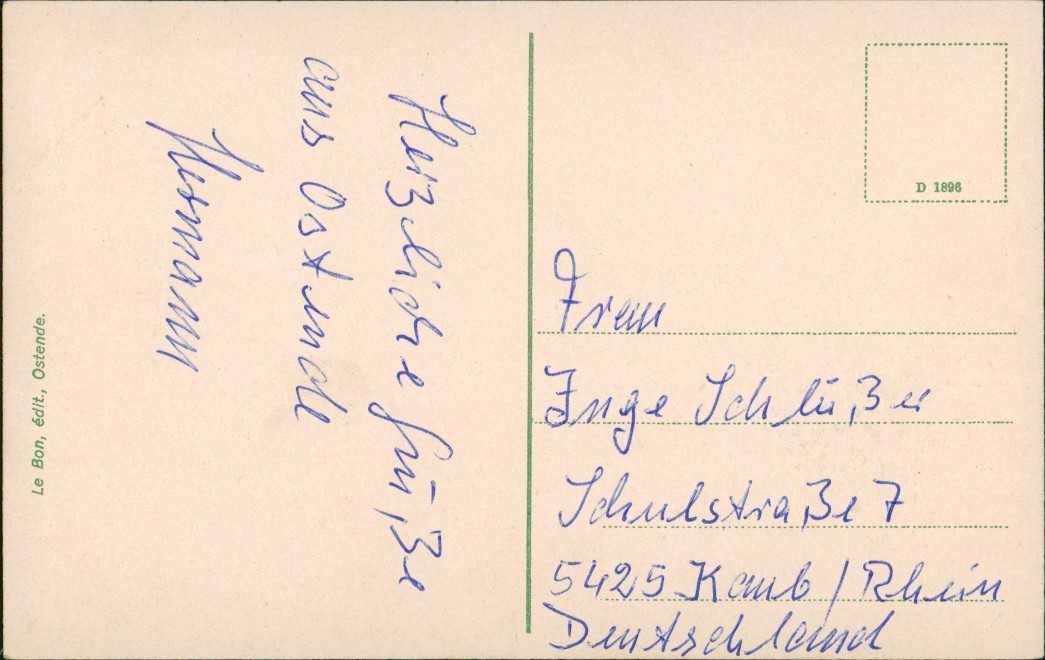 Herzliche Grüße
aus Ostende
Hermann
Le Bon, édit., Ostende.
D 1896
Frau
Inge Schlüßer
Schulstraße 7
5425 Kaub / Rhein
Deutschland